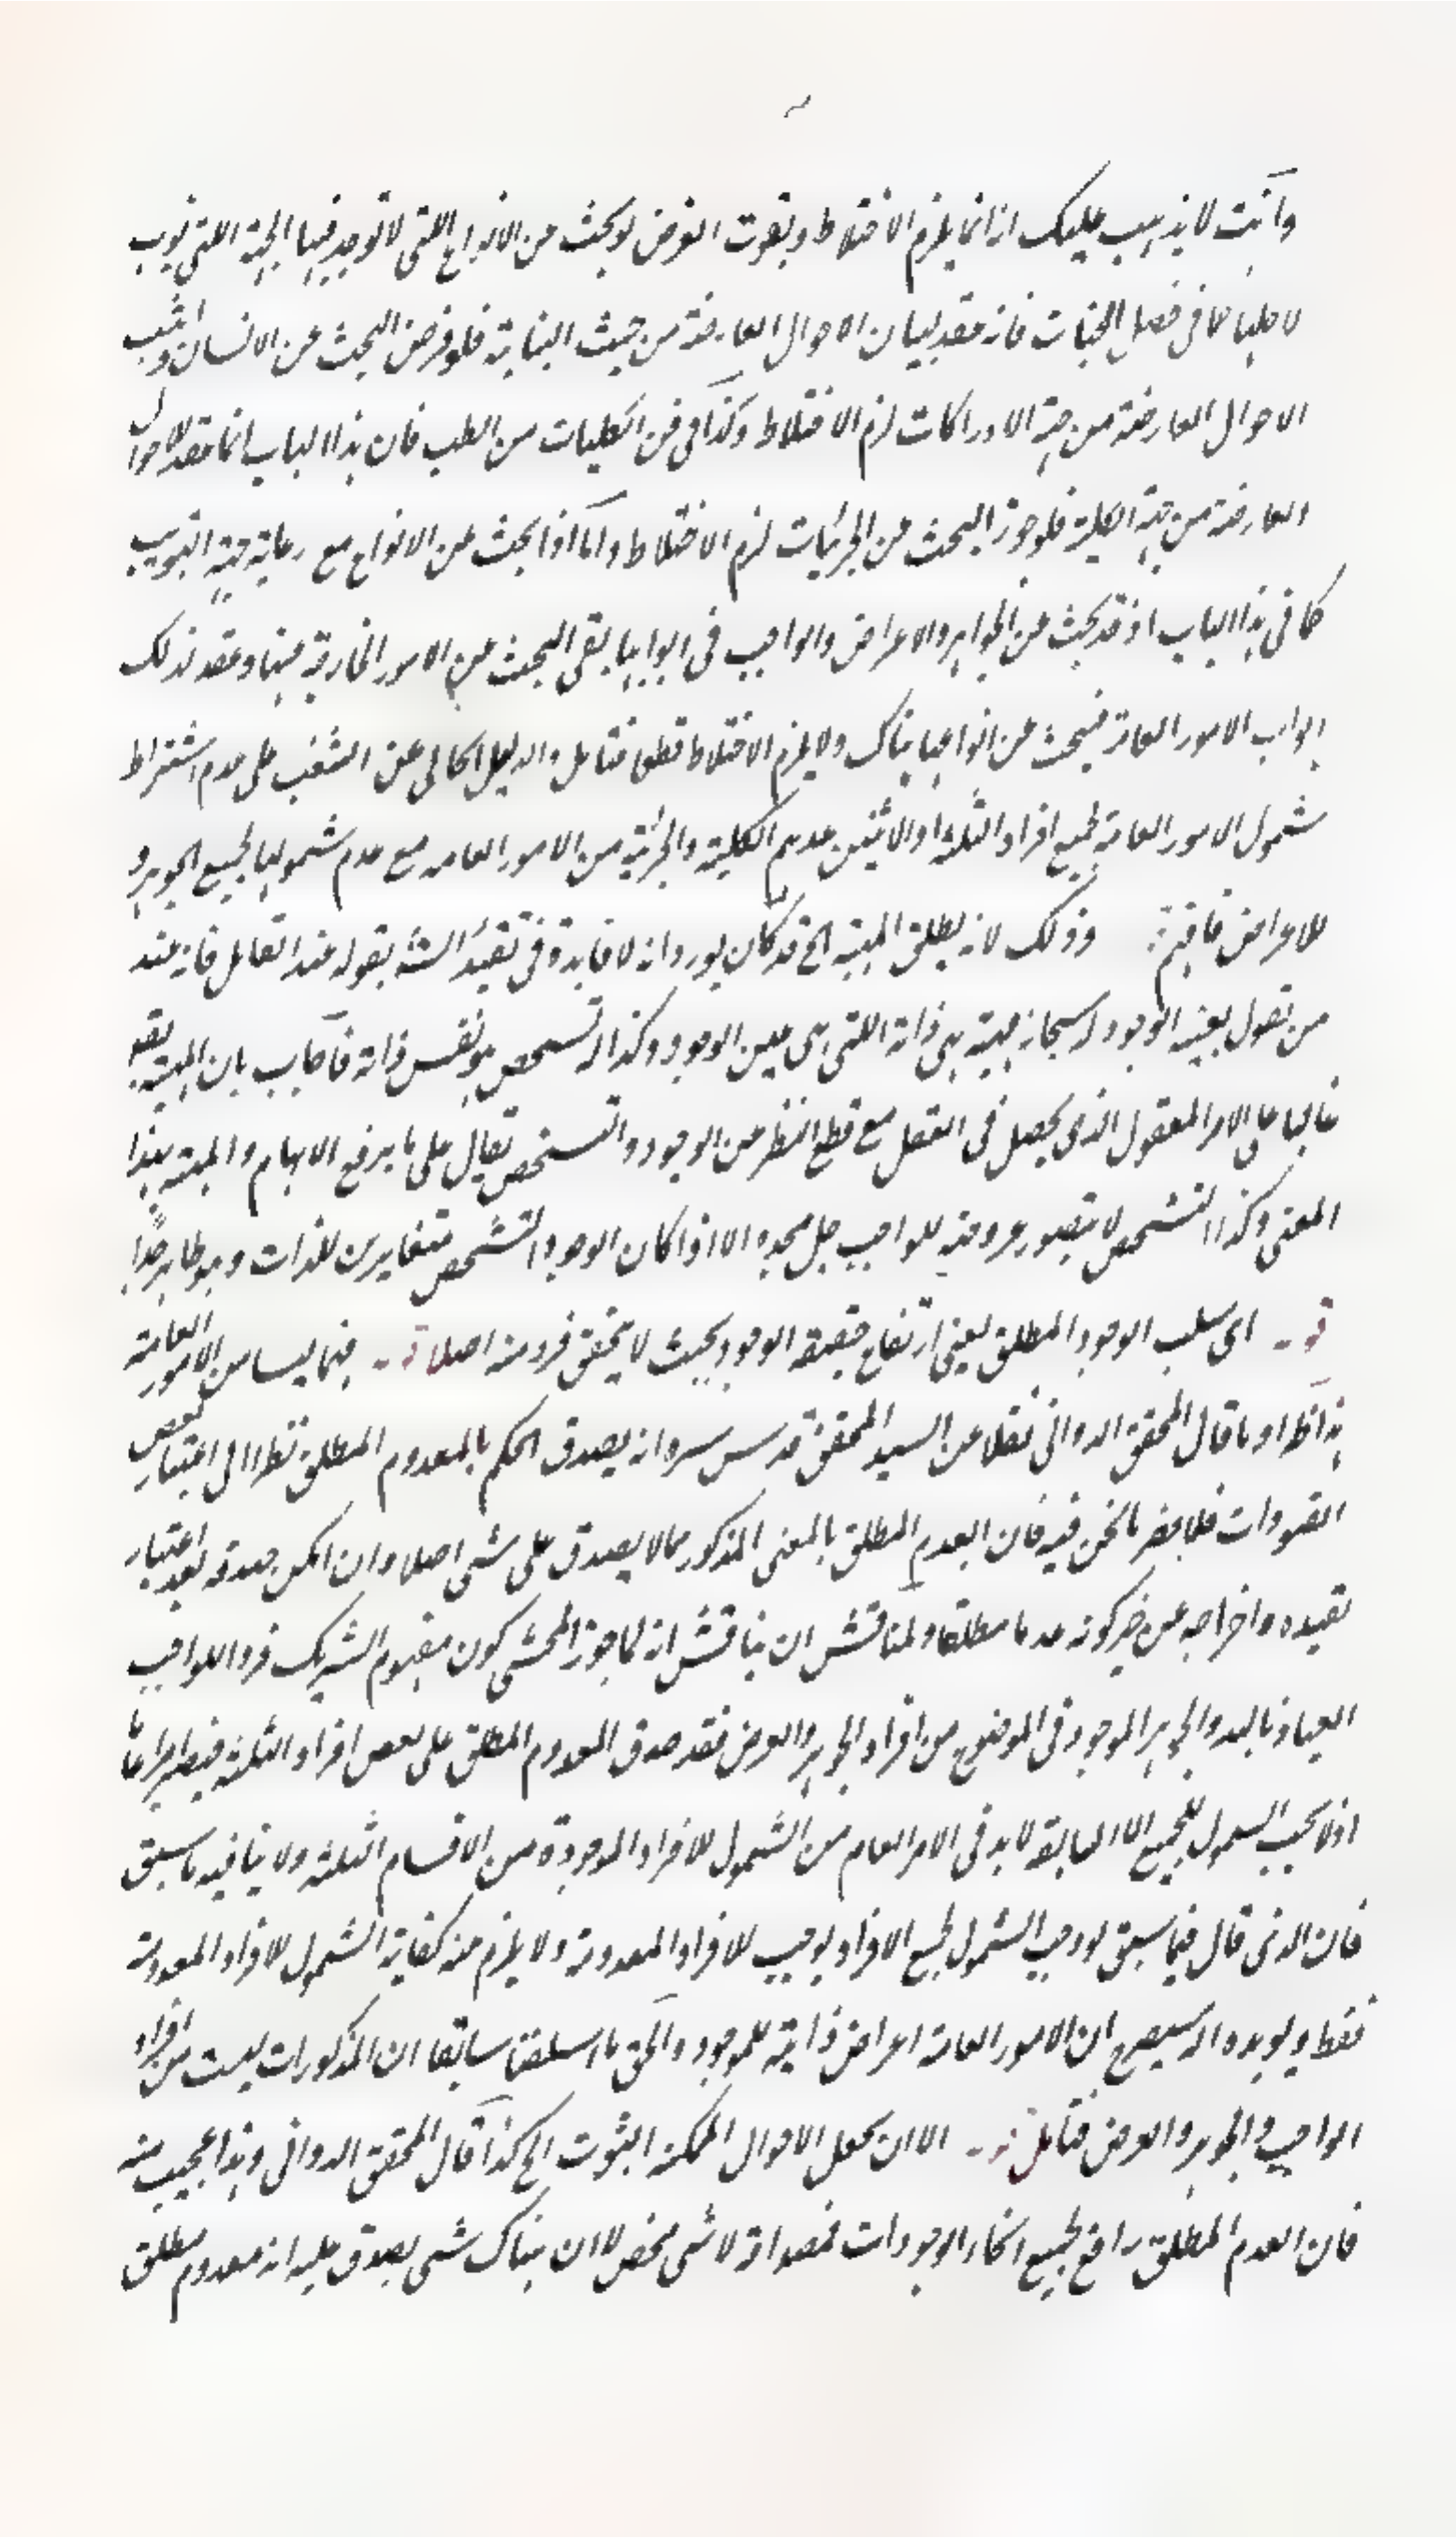 وانت لا يذهب عليك انه انما يلزم الاختلاط ويفوت الغرض لو بحث عن الانواع اللتى لا توجد فيها الجهة اللتى بوب
لاجلها كما فى فصل النبات فانه عقد لبيان الاحوال العارضة من حيث النباتية فلو فرض البحث عن الانسان واثبت
الاحوال العارضة من جهة الادراكات لزم الاختلاط وكذا فى فن الكليات من الطب فان هذا الباب انما عقد لاحوال
العارضة من جهة الكلية فلو جوز البحث عن الجزئيات لزم الاختلاط واما اذا بحث عن الانواع مع رعاية جهة التبويب
كما فى هذا الباب اذ قد بحث عن الجواهر والاعراض والواجب فى ابوابها بقى البحث عن الامور الخارقة عنها وعقد لذلك
ابواب الامور العامة فيبحث عن انواعها هناك ولا يلزم الاختلاط قطعا فتامل والدليل الخالى عن الشغب على عدم اشتراط
شمول الامور العامة لجميع افراد الثلثة او الاثنين عدهم الكلية والجزئية من الامور العامه مع عدم شمولها لجميع الجوهر و
للاعراض فافهم وذلك لانه يطلق المهية الخ قد كان يورد انه لا فايدة فى تقييد الشئ بقوله عند القائل فانه عند
من يقول بعينية الوجود له سبحانه مهية هى ذاته اللتى هى عين الوجود وكذا له تشخص هو نفس ذاته فاجاب بان المهية يقع
غالبا على الامر المعقول الذى يحصل فى العقل مع قطع النظر عن الوجود والتشخص يقال على ما يرفع الابهام والمهية بهذا
المعنى وكذا التشخص لا يتصور عروضه للواجب جل مجده الا اذا كان الوجود والتشخص متغايرين للذات وهو ظاهر جدا
قوله اى سلب الوجود المطلق يعنى ارتفاع حقيقة الوجود بحيث لا يتحقق فرد منه اصلا قوله فهما ليسا من الامور العامة
هذا ظاهر وما قال المحقق الدوانى نقلا عن السيد المحقق قدس سره انه يصدق الحكم بالمعدوم المطلق نظرا الى اعتبار بعض
القيودات فلا يضر ما نحن فيه فان العدم المطلق بالمعنى المذكور مما لا يصدق على شى اصلا وان امكن صدقه بعد اعتبار
تقييده واخراجه عن حيز كونه عدما مطلقا ولمناقش ان يناقش انه لما جوز المحشى كون مفهوم الشريك فردا للواجب
العياذ بالله والجوهر الموجود فى الموضوع من افراد الجوهر والعرض فقد صدق المعدوم المطلق على بعض افراد الثلثة فيصير امرا عاما
اذ لا يجب الشمول للجميع الا ان يقال لا بد فى الامر العام من الشمول للافراد الموجودة من الاقسام الثلثة ولا ينافيه ما سبق
فان الذى قال فيما سبق لو وجب الشمول لجميع الافراد يوجب للافراد المعدومة ولا يلزم منه كفاية الشمول للافراد المعدومة
فقط ويويده انه سيصرح ان الامور العامة اعراض ذاتية للموجود والحق ما اسلفنا سابقا ان المذكورات ليست من افراد
الواجب والجوهر والعرض فتامل قوله الا ان يجعل الاحوال الممكنة الثبوت الخ كذا قال المحقق الدوانى وهذا عجيب منه
فان العدم المطلق رافع لجميع انحاء الوجودات فمصداقه لا شى محض لا ان هناك شى يصدق عليه انه معدوم مطلق